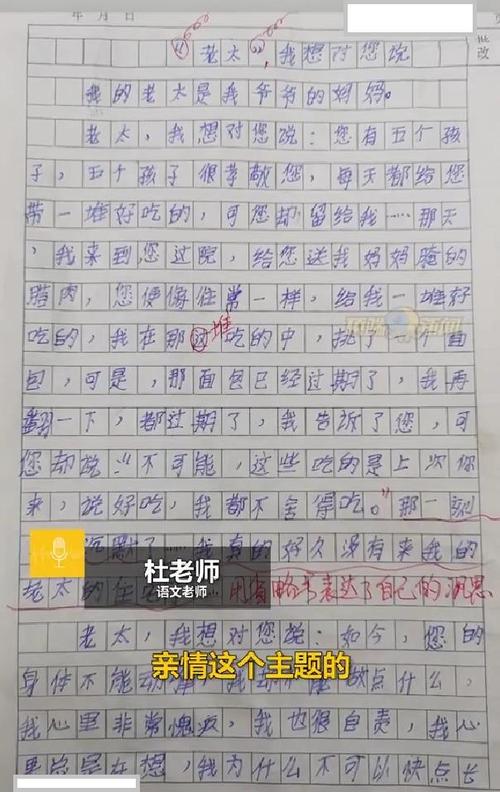 年 月 日
批改
老太,我想对您说
我的老太是我爷爷的妈妈。
老太,我想对您说:您有五个孩
子,五个孩子很孝敬您,每天都给您
带一堆好吃的,可您却留给我……那天
,我来到您过院,给您送我妈妈腌的
腊肉,您便像往常一样,给我一堆好
吃的,我在那堆吃的中,挑了一个面
包,可是,那面包已经过期了,我再
翻一下,都过期了,我告诉了您,可
您却说:"不可能,这些吃的是上次你
来,说好吃,我都不舍得吃。"那一刻
沉默了……我真的好久没有来我的
老太的住
用省略号表达了自己的沉思
杜老师
语文老师
老太,我想对您说:如今,您的
亲情这个主题的
身体不能动 做点什么,
我心里非常愧疚,我也很自责,我心
里总是在想,我为什么不可以快点长